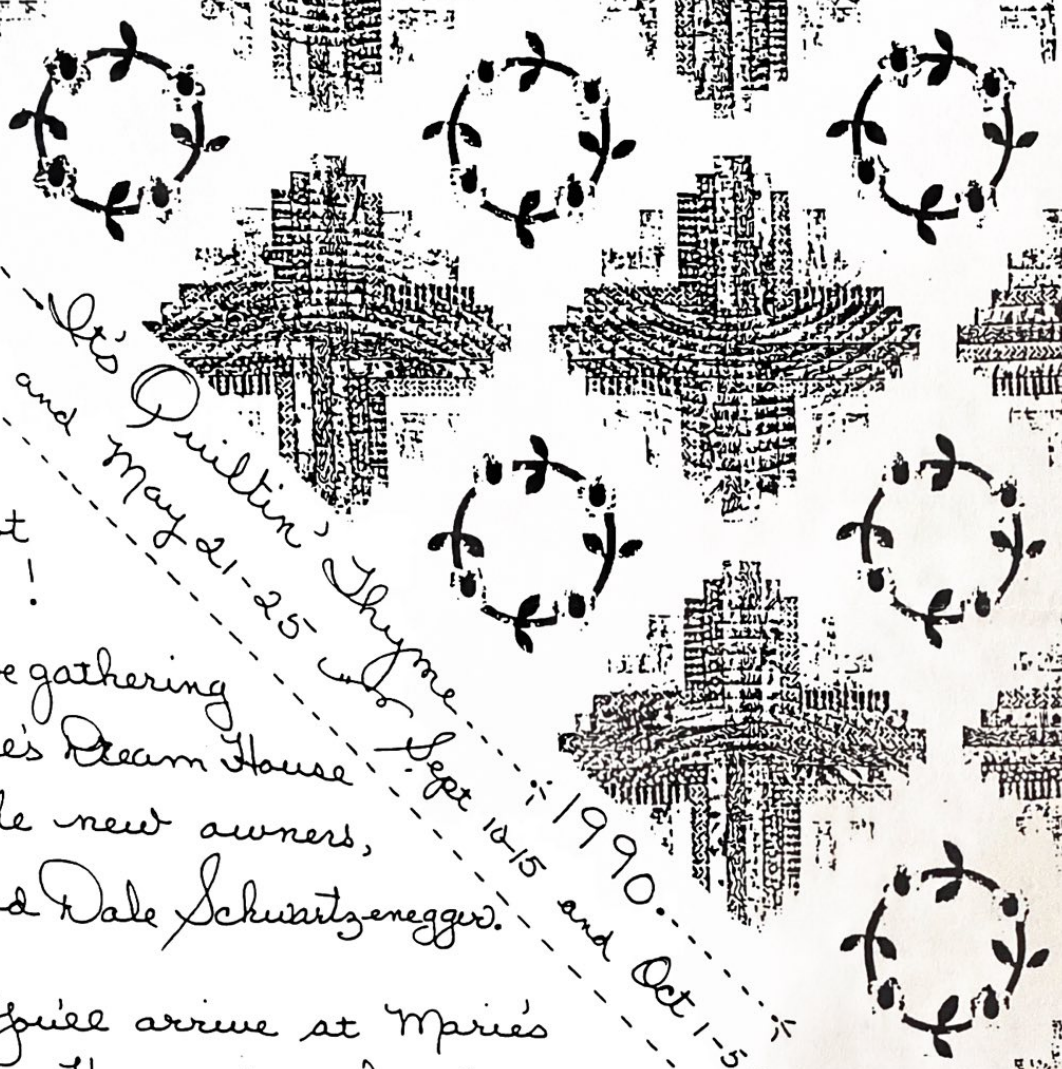 It's Quiltin' Thyme 1990
and May 21-25 Sept 10-15 and Oct 1-5
t
!
e gathering
e's Dream House
le new owners,
d Dale Schwartzenegger.
you'll arrive at Marie's